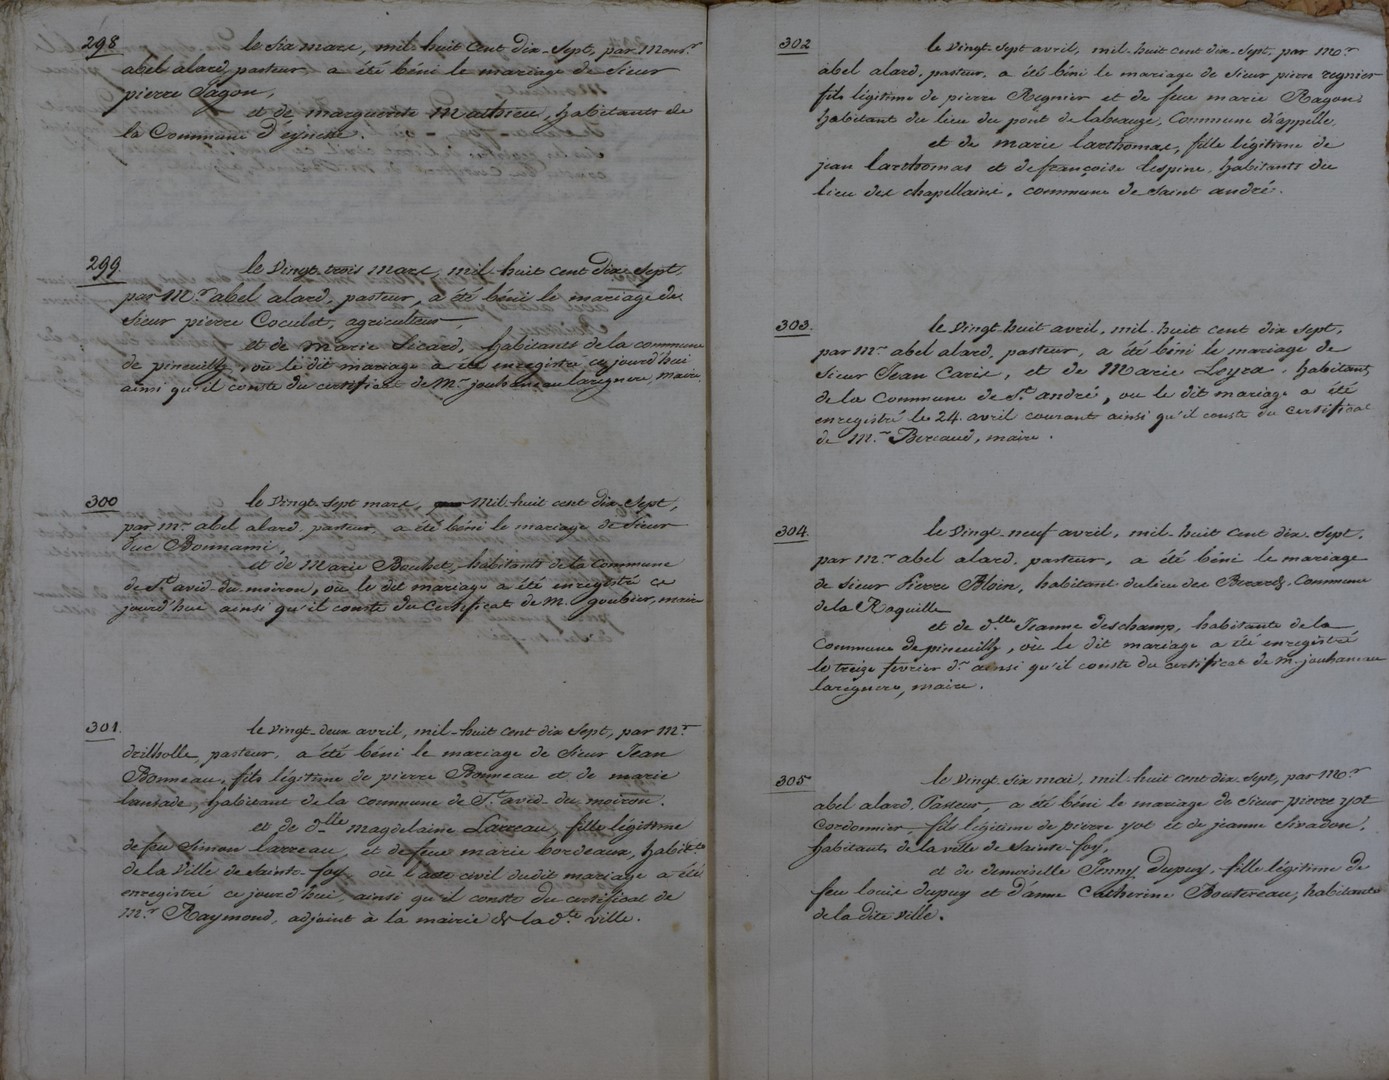 298
le Six mars, mil huit cent dix-Sept, par Monsr.
abel alard, pasteur, a été béni le mariage de Sieur
pierre Sagon,
et de marguerite Mathieu, habitants de
la Commune d'eynesse.
299
le vingt-trois mars, mil-huit cent dix-Sept,
par Mr. abel alard, pasteur, a été béni le mariage de
Sieur pierre Coculet, agriculteur
et de Marie Sicard, habitants de la commune
de pineuilh, où le dit mariage a été enregistré ce jourd'hui
ainsi qu'il conste du certificat de Mr. jouhanneau laregnere, maire.
300
le vingt-Sept mars, Mil-huit cent dix-Sept,
par mr. abel alard, pasteur, a été béni le mariage de Sieur
Luc Bonnami,
et de Marie Boulet, habitants de la Commune
de St. avid du moiron, où le dit mariage a été enregistré ce
jourd'hui ainsi qu'il conste du Certificat de M. goubier, maire
301.
le vingt-deux avril, mil-huit cent dix Sept, par Mr.
drilholle, pasteur, a été béni le mariage de Sieur Jean
Bonneau, fils légitime de pierre Bonneau et de marie
lansade, habitant de la commune de St. avid-du-moiron.
et de dlle. magdelaine Larreau, fille légitime
de feu Simon larreau, et de feue marie bordeaux, habitte.
de la Ville de Sainte-foy, où l'acte civil dudit mariage a été
enregistré ce jourd'hui, ainsi qu'il conste du certificat de
Mr. Raymond, adjoint à la mairie de la dte. ville.
302
le vingt-Sept avril, mil-huit cent dix-Sept, par Mr.
abel alard, pasteur, a été béni le mariage de Sieur pierre regnier
fils légitime de pierre Regnier et de feue marie Ragon,
habitant du lieu du pont de labeauze, Commune d'appelle,
et de marie larthomas, fille légitime de
jean larthomas et de françoise lespine, habitants du
lieu des chapellains, commune de Saint andré.
303.
le Vingt-huit avril, mil-huit cent dix Sept,
par mr. abel alard, pasteur, a été béni le mariage de
Sieur Jean Caris, et de Marie Leyra, habitants
de la Commune de St. andré, ou le dit mariage a été
enregistré le 24. avril courant ainsi qu'il conste du certificat
de M. Bercaud, maire.
304.
le Vingt-neuf avril, mil-huit cent dix Sept,
par mr. abel alard, pasteur, a été béni le mariage
de Sieur Pierre Bloin, habitant du lieu des Berards, Commune
de la Roquille
et de dlle. Jeanne deschamp, habitante de la
Commune de pineuilh, où le dit mariage a été enregistré
le treize fevrier dr. ainsi qu'il conste du certificat de m. jouhanneau
laregnere, maire.
305
le vingt-Six mai, mil-huit cent dix Sept, par Mr.
abel alard, Pasteur, a été béni le mariage de Sieur pierre yot
Cordonnier fils légitime de pierre yot et de jeanne Sivadon,
habitants de la ville de Sainte-foy,
et de demoiselle Jenny Dupuy, fille légitime de
feu louis dupuy et d'anne Catherine Boutereau, habitante
de la dite Ville.